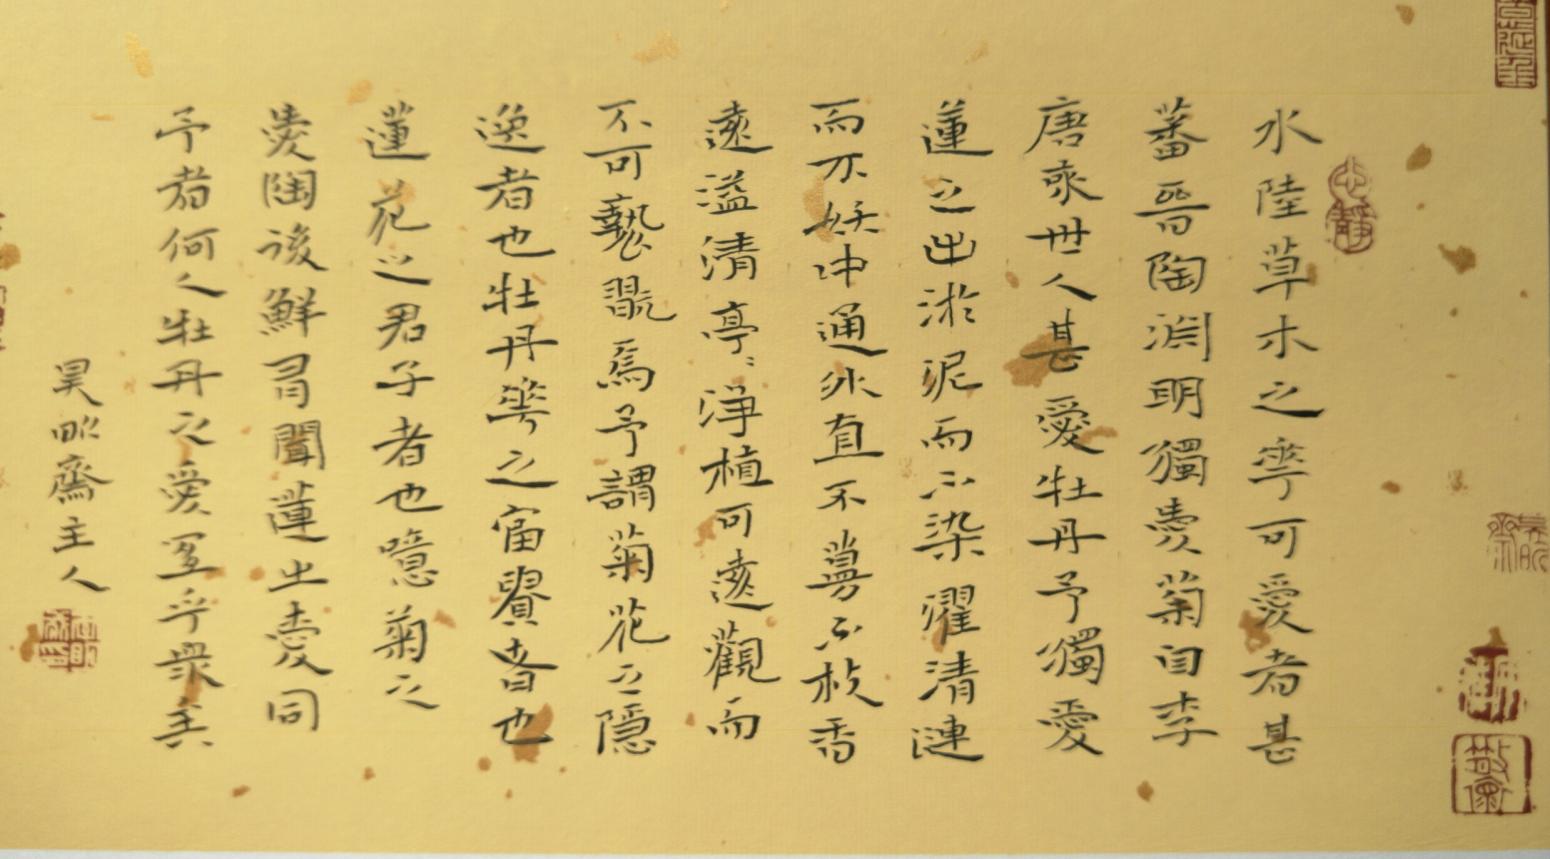 水陸草木之華可愛者甚
蕃晉陶淵明獨愛菊自李
唐來世人甚愛牡丹予獨愛
蓮之出淤泥而不染濯清漣
而不妖中通外直不蔓不枝香
遠溢清亭〻淨植可遠觀而
不可褻翫焉予謂菊花之隱
逸者也牡丹華之富貴者也
蓮花之君子者也噫菊之
愛陶後鮮有聞蓮之愛同
予者何人牡丹之愛宜乎眾矣
昊畇齋主人
心靜